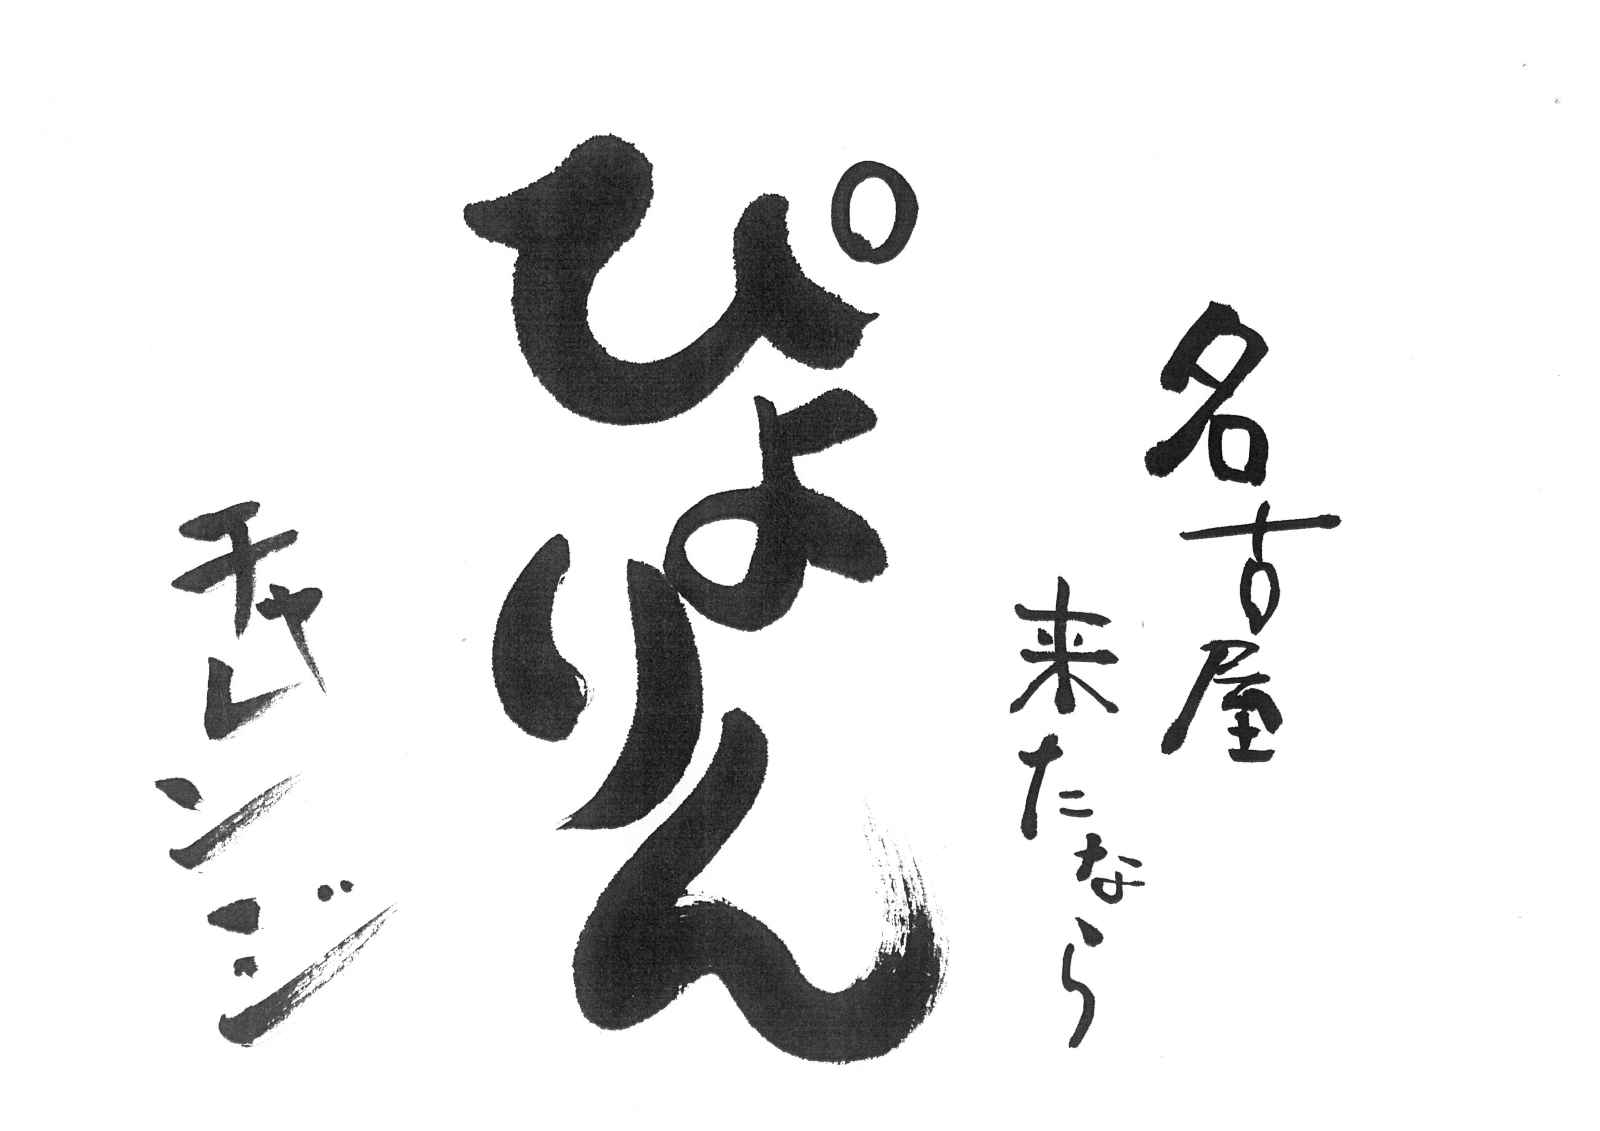 名古屋
来たなら
ぴよりん
チャレンジ